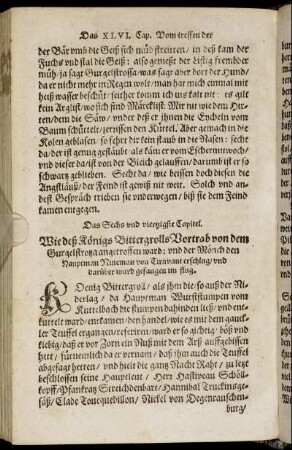 Das XLVI. Cap. Vom treffen der
der Bär vmb die Geiß sich müd streitten / in deß kam der
Fuchs vnd stal die Geiß: also geniest der listig frembder
müh / ja sagt Gurgelstrossa / was sagt aber dort der Hund /
da er nicht mehr in Regen wolt / man hat mich einmal mit
heiß wasser beschüt / seither komm ich ins kalt nit: es gilt
kein Arglist / wo sich sind Märcklist: Mir nit wie dem Hir-
ten / dem die Säw / vnder deß er ihnen die Eycheln vom
Baum schüttelt / zerrissen den Küttel. Aber gemach in die
Kolen geblasen: so fehrt dir kein staub in die Nasen: secht
da / der ist genug gestäubt / als käm er vom Eschermittwoch /
vnd dieser da ist von der Bleich gelauffen / darumb ist er so
schwartz geblieben. Secht da / wie beissen doch diesen die
Angstläuß / der Feind ist gewiß nit weit. Solch vnd an-
dest Gespräch trieben sie vnderwegen / biß sie dem Feind
kamen entgegen.
Das Sechs vnd viertzigste Capitel.
Wie deß Königs Bittergrolls Vortrab von dem
Gurgelstrotza angetroffen ward; vnd der Mönch den
Hauptman Nineman von Tiravant erschlug / vnd
darüber ward gefangen im flug.
KOenig Bittergroll / als jhm die / so auß der Ni-
derlag / da Hauptman Wurststumpen vom
Kuttelbach die stumpen dahinden ließ / vnd ent-
kuttelt ward / entkamen / den handel / wie es mit dem gauck-
ler Teuffel ergangen / referiren / ward er so gichtig / böß vnd
kiebig / daß er vor Zorn ein Nuß mit dem Arß auffgebissen
hett / fürnemlich da er vernam / daß jhm auch die Teuffel
abgesagt hetten / vnd hielt die gantz Nacht Raht / zu letzt
beschlossen seine Hauptleut / Herr Hastiveau Schöll-
kopff / Pfankratz Streichdenbart / Hannibal Truckinsge-
säß / Clade Toucquedillon / Nickel von Degenrauschen-
burg /